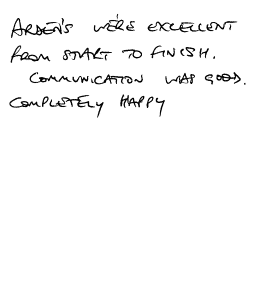 ARDEN'S WERE EXCELLENT
FROM START TO FINISH.
COMMUNICATION WAS GOOD.
COMPLETELY HAPPY